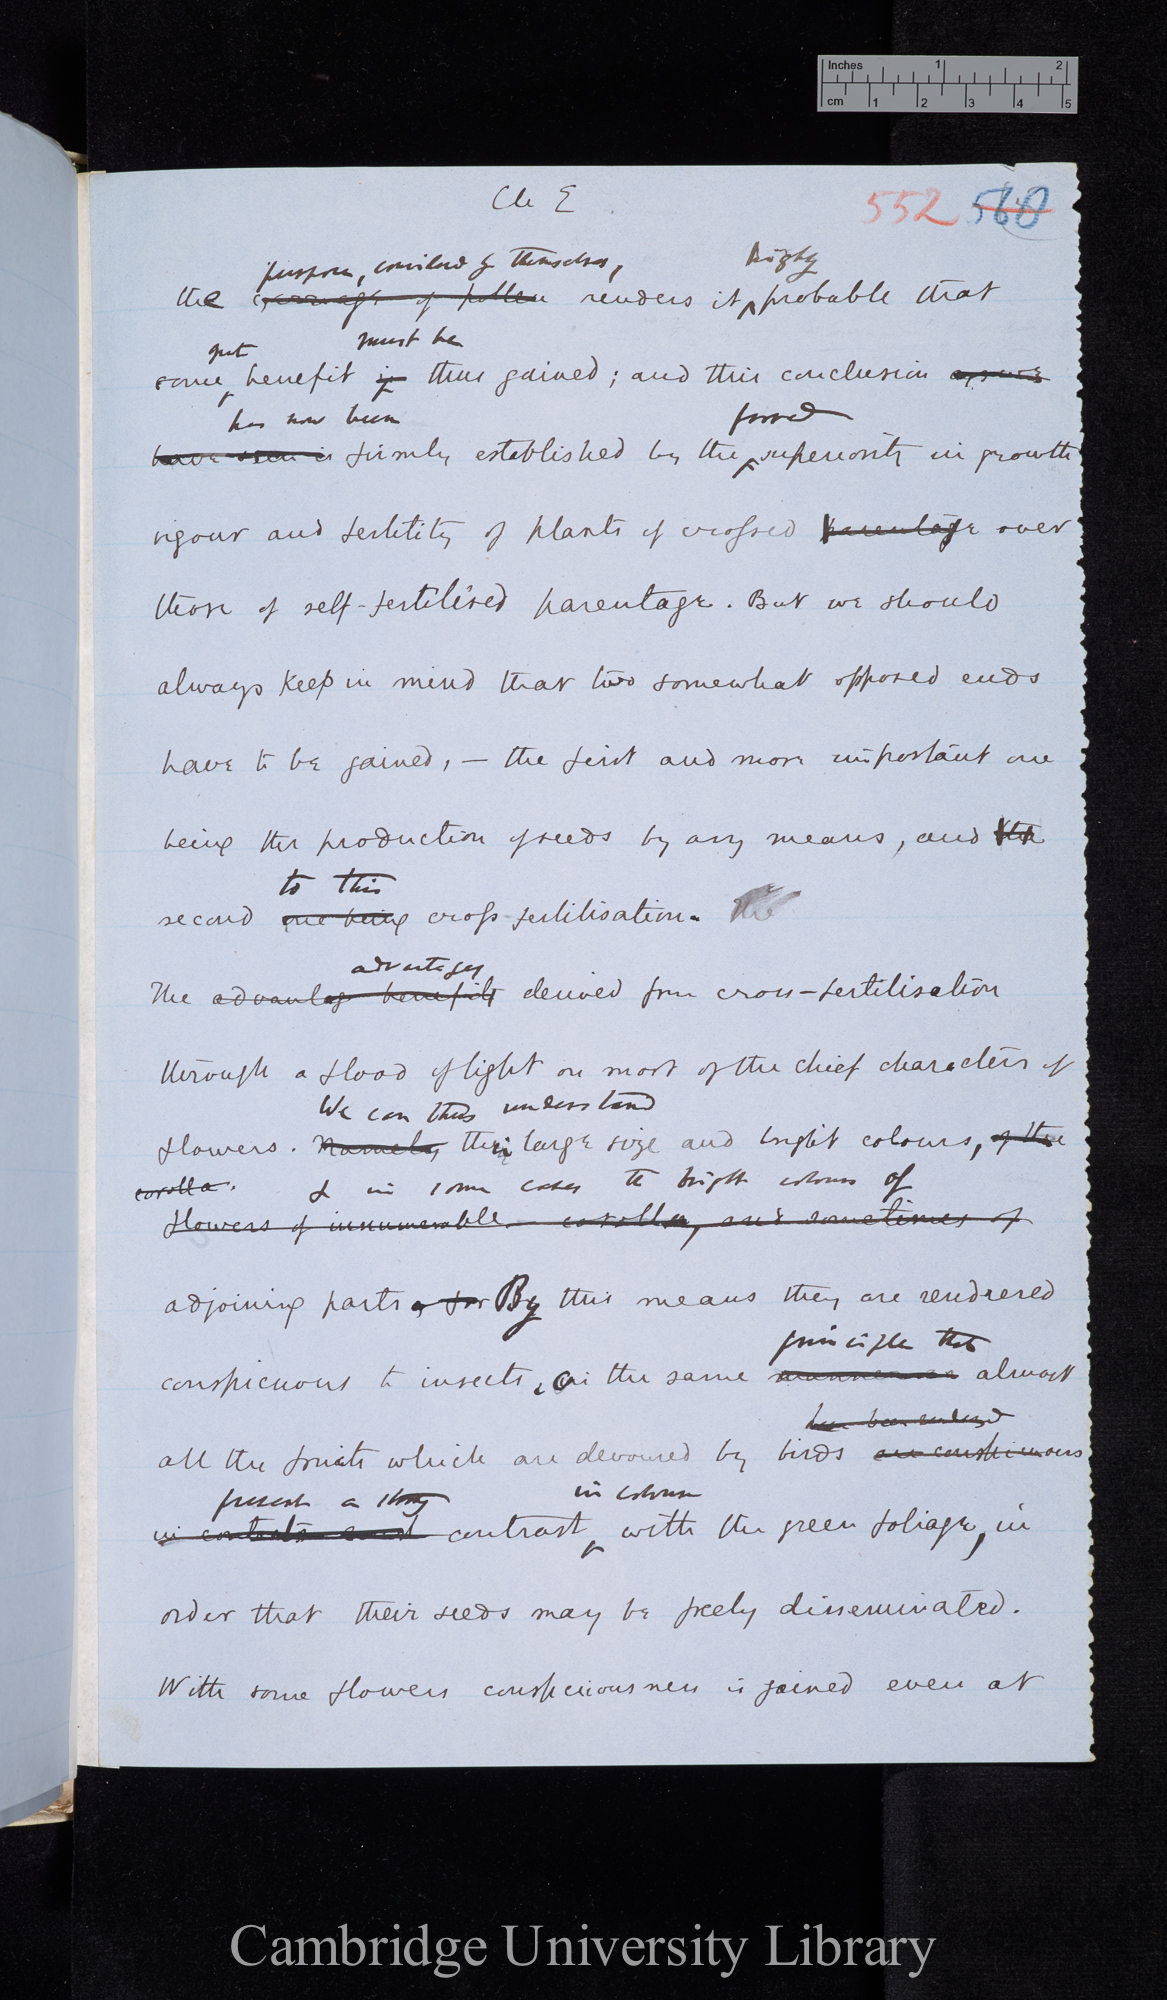 Inches 1 2
cm 1 2 3 4 5
Ch E
552 560
purpose, considered by themselves, highly
the carriage of pollen renders it probable that
great must be
some benefit is thus gained; and this conclusion
has now been proved
have seen is firmly established by the superiority in growth
vigour and fertility of plants of crossed parentage over
those of self-fertilised parentage. But we should
always keep in mind that two somewhat opposed ends
have to be gained, — the first and more important one
being the production of seeds by any means, and the
to this
second one being cross-fertilisation. The
advantages
The advantage benefits derived from cross-fertilisation
through a flood of light on most of the chief characters of
We can thus understand
flowers. Namely their large size and bright colours, of the
corolla. & in some cases the bright colours of
flowers of innumerable corolla, and sometimes of
adjoining parts, for By this means they are rendrered
principle that
conspicuous to insects, on the same almost
have been rendered
all the fruits which are devoured by birds are conspicuous
present a strong in colour
in contrast contrast with the green foliage, in
order that their seeds may be freely disseminated.
With some flowers conspicuousness is gained even at
Cambridge University Library